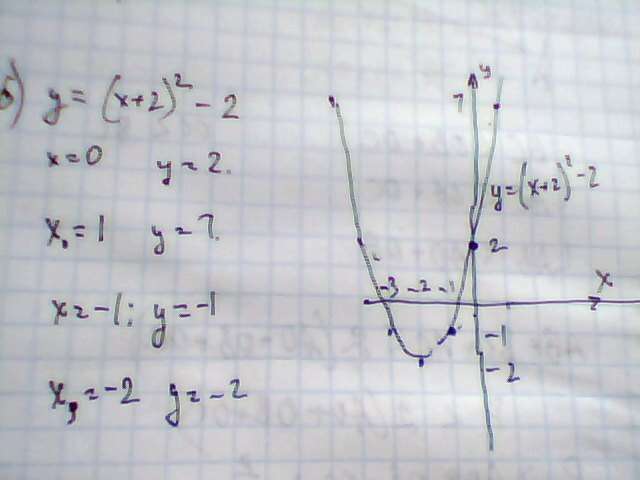 б) y = (x+2)² - 2
x = 0 y = 2.
x, = 1 y = 7.
x = -1; y = -1
x, = -2 y = -2
y
7
y = (x+2)² - 2
2
x
-3 -2 -1
-1
-2